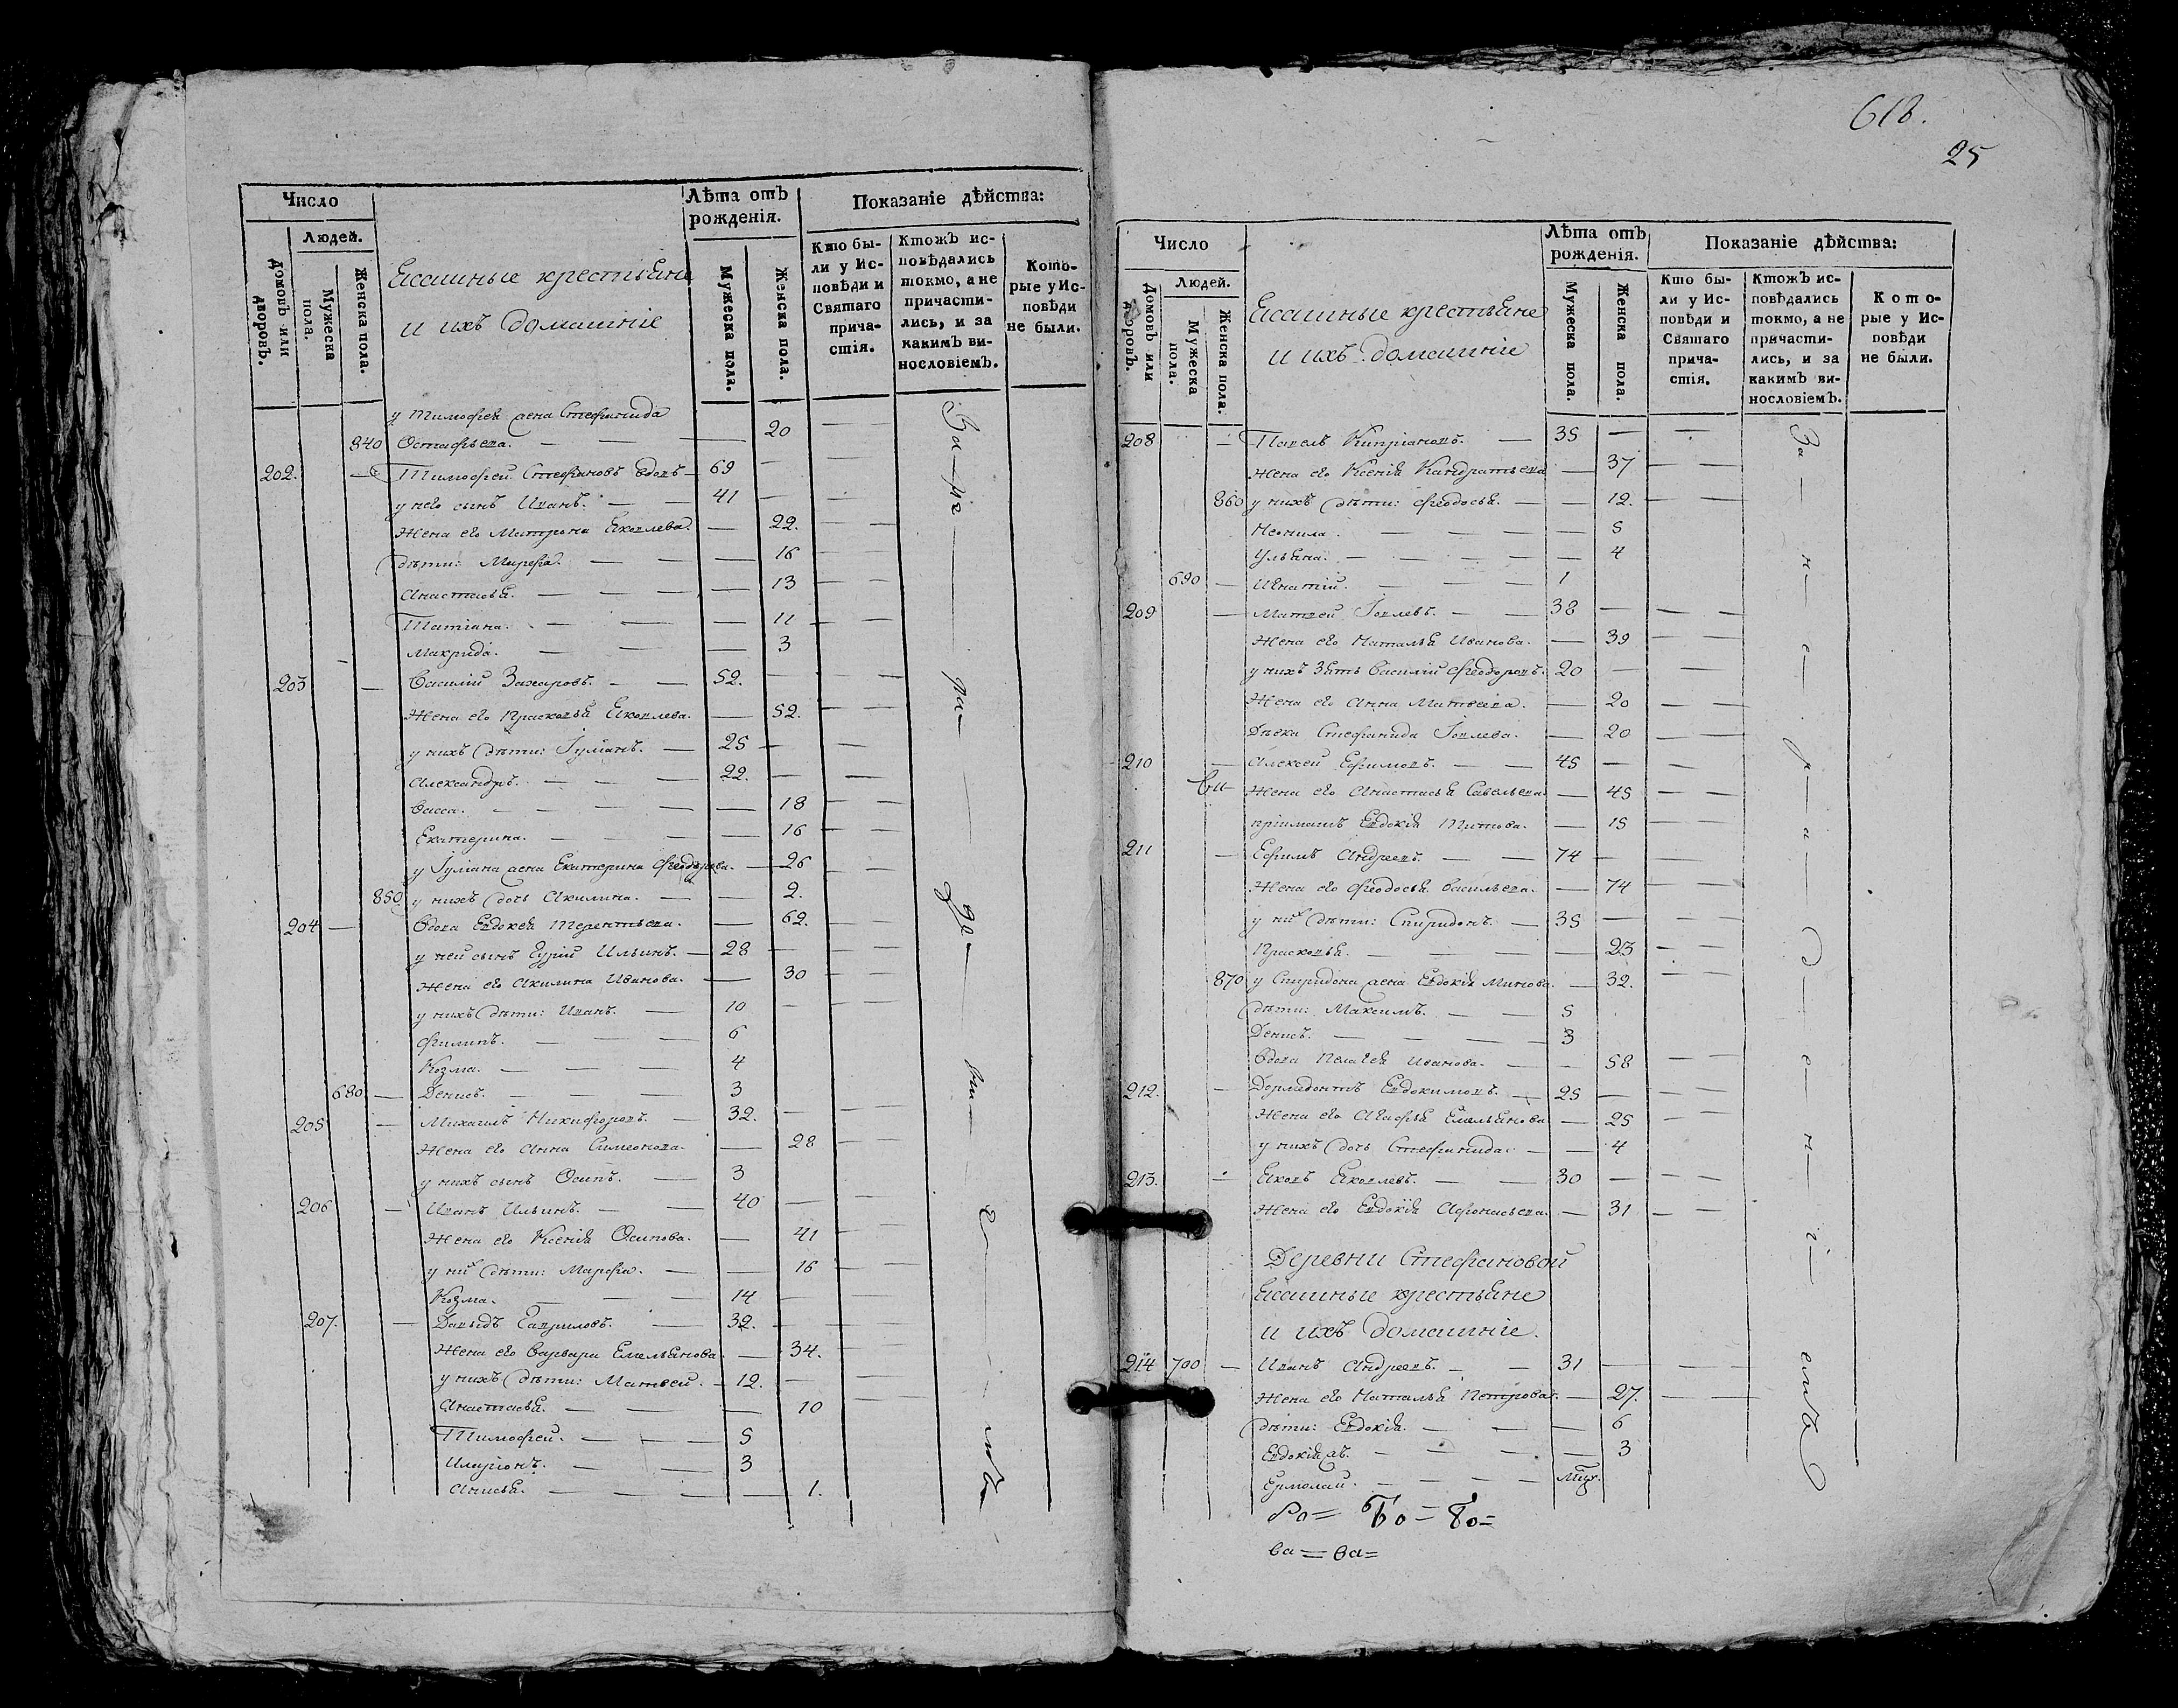 Число
Людей.
Домовъ или дворовъ.
Мужеска пола.
Женска пола.
Ясашные крестьяне
и ихъ домашніе
Лѣта отъ рожденія.
Мужеска пола.
Женска пола.
Показаніе дѣйства:
Кто бы-
ли у Ис-
повѣди и
Святаго
прича-
стія.
Ктожъ ис-
повѣдались
токмо, а не
причасти-
лись, и за
какимъ ви-
нословіемъ.
Кото-
рые у Ис-
повѣди
не были.
у Тимофея жена Стефанида
840 Остафьева. — 20
202. Тимофей Стефановъ вдовъ — 69
у него сынъ Иванъ. — 41
Жена его Матрона Яковлева. — 22.
дѣти: Марфа. — 16
Анастасья. — 13
Татіана. — 11
Макрида. — 3
203 Василій Захаровъ. — 52.
Жена его Прасковья Яковлева. — 52.
у нихъ дѣти: Іуліанъ. — 25
Александръ. — 22.
Васса. — 18
Екатерина. — 16
у Іуліана жена Екатерина Феодорова. — 26
850 у нихъ дочь Акилина. — 2.
204 — Вдова Евдокея Терентьева. — 62.
у ней сынъ Гурій Ильинъ. — 28
Жена его Акилина Иванова. — 30
у нихъ дѣти: Иванъ. — 10
Филипъ. — 6
Козма. — 4
680 — Денисъ. — 3
205 — Михаилъ Никифоровъ. — 32.
Жена его Анна Симеонова. — 28
у нихъ сынъ Осипъ. — 3
206 — Иванъ Ильинъ. — 40
Жена его Ксенія Осипова. — 41
у них дѣти: Марфа. — 16
Козма. — 14
207. — Давыдъ Гавриловъ. — 32.
Жена его Варвара Емельянова. — 34.
у нихъ дѣти: Матвей. — 12.
Анастасья. — 10
Тимофей. — 5
Иларіонъ. — 3
Анисья. — 1.
618.
25
Число
Людей.
Домовъ или дворовъ.
Мужеска пола.
Женска пола.
Ясашные крестьяне
и ихъ домашніе
Лѣта отъ рожденія.
Мужеска пола.
Женска пола.
Показаніе дѣйства:
Кто бы-
ли у Ис-
повѣди и
Святаго
прича-
стія.
Ктожъ ис-
повѣдались
токмо, а не
причасти-
лись, и за
какимъ ви-
нословіемъ.
Кото-
рые у Ис-
повѣди
не были.
208 — Павелъ Кипріановъ. — 35
Жена его Ксенія Кандратьева — 37
860 у нихъ дѣти: Феодосья. — 12.
Неонила. — 5
Ульяна. — 4
690 — Игнатій. — 1
209 — Матвей Іовлевъ. — 38
Жена его Наталья Иванова. — 39
у нихъ зять Василій Феодоровъ. 20
Жена его Анна Матвеева. — 20
Дѣвка Стефанида Іовлева. — 20
210 — Алексей Ефимовъ. — 45
Жена его Анастасья Савельева. — 45
пріимышъ Евдокія Титова. — 15
211 — Ефимъ Андреевъ. — 74
Жена его Феодосья Васильева. — 74
у них дѣти: Спиридонъ. — 35
Прасковья. — 23
870 у Спиридона жена Евдокія Минова. — 32.
дѣти: Максимъ. — 5
Денисъ. — 3
Вдова Пелагея Иванова. — 58
212. — Дормидонтъ Евдокимовъ. — 25
Жена его Агафья Емельянова — 25
у нихъ дочь Стефанида. — 4
213. — Яковъ Яковлевъ. — 30
Жена его Евдокія Афонасьева. — 31
Деревни Стефановой
Ясашные крестьяне
и ихъ домашніе.
214 700 — Иванъ Андреевъ. — 31
Жена его Наталья Петрова. — 27.
дѣти: Евдокія. — 6
Евдокія ав. — 3
Ермолай. —
За — н — е — р — а — д — е — н — і — емъ